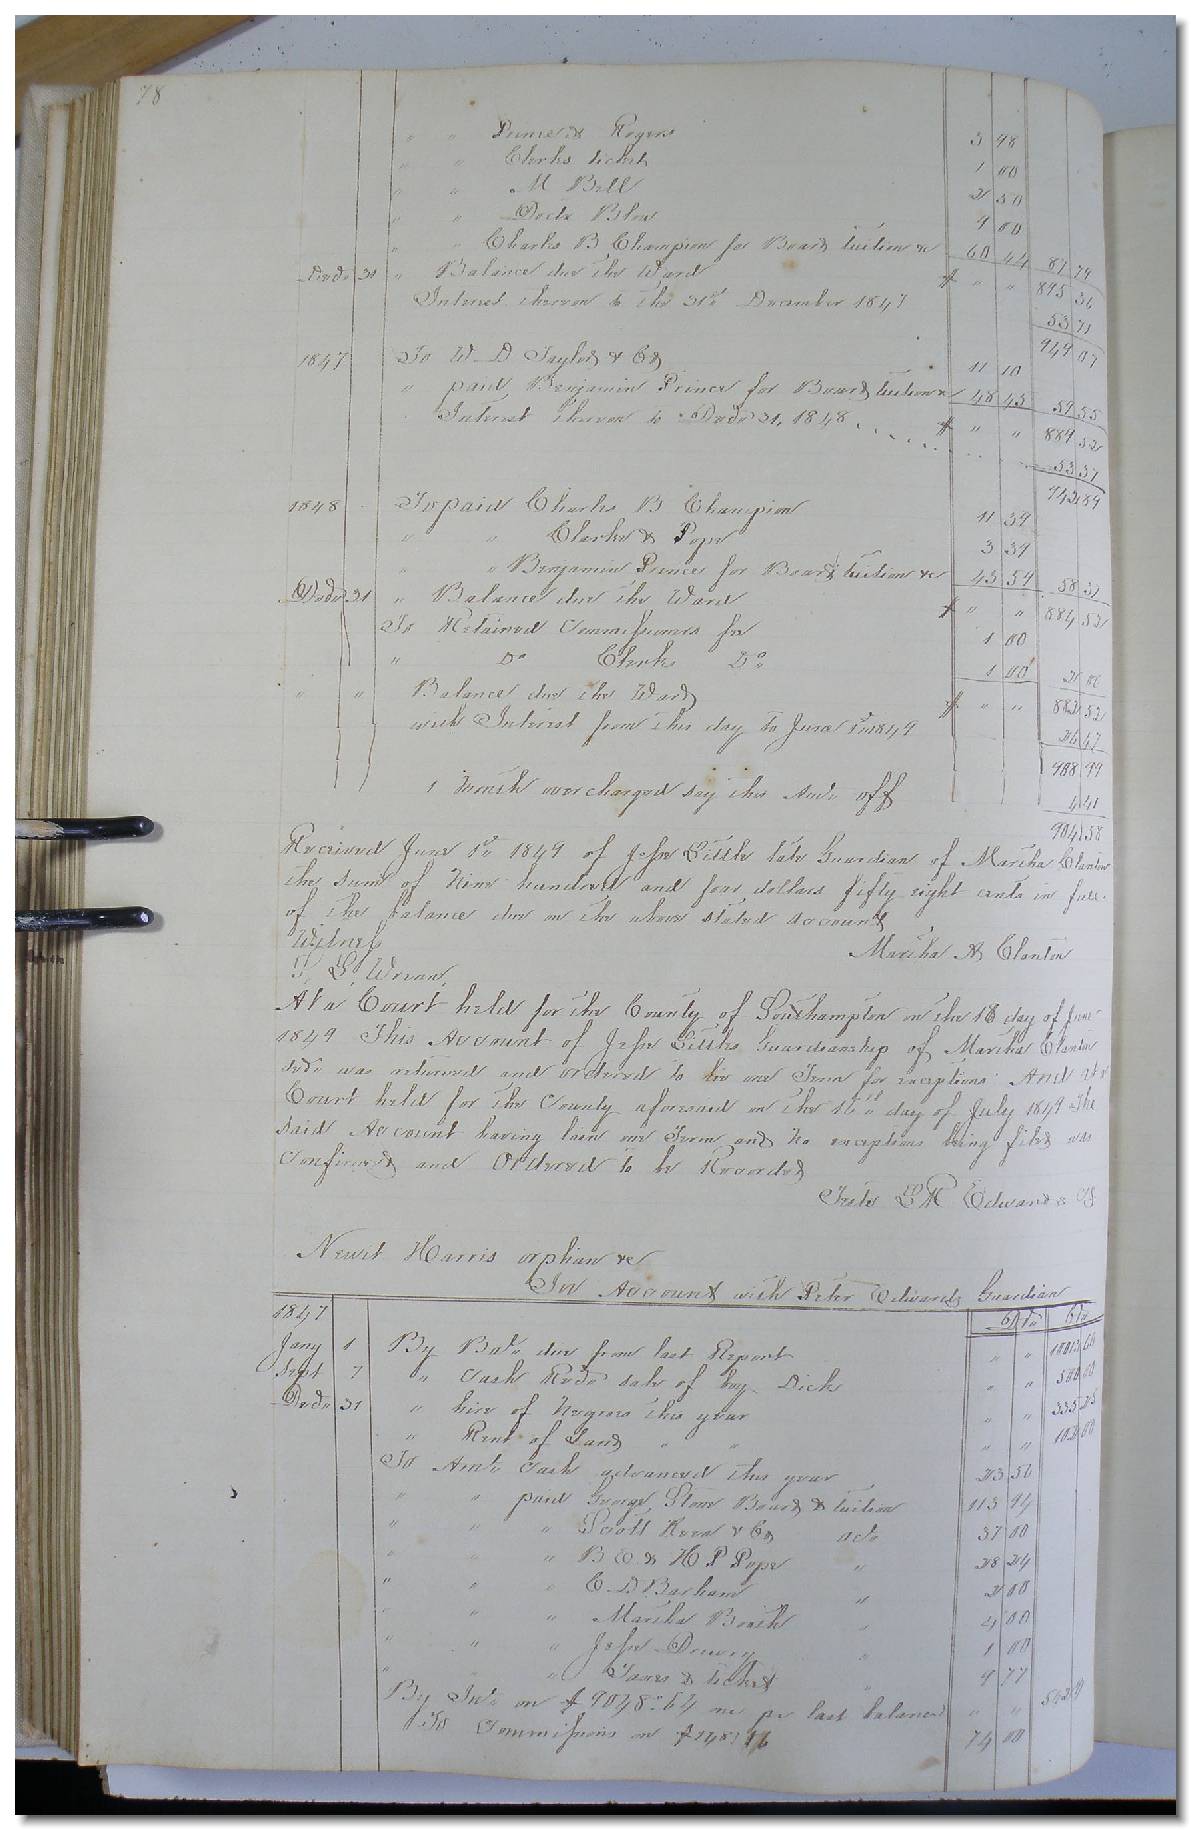 78
" " Prince & Rogers 3 98
" " Clerks ticket 1 00
" " M Bell 2 50
" " Doctr Blow 9 00
" " Charles B Champion for Board tuition &c 60 44 87 79
Decr 31 " Balance due the Ward $ " " 895 36
Interest thereon to the 31st December 1847 53 71
949 07
1847 To W D Taylor & Co 11 10
" paid Benjamin Prince for Board tuition & 48 45 59 55
Interest thereon to Decr 31, 1848 $ " " 889 52
53 37
942 89
1848 To paid Charles B Champion 11 39
" " Clarke & Pope 3 39
" " Benjamin Prince for Board tuition &c 43 54 58 32
Decr 31 " Balance due the Ward $ " " 884 52
To Retained Commissioners fee 1 00
" Do Clerks Do 1 00 2 00
" " Balance due the Ward $ " " 882 52
with Interest from this day to June 1st 1849 26 47
908 99
1 Month overcharged say this Amt. off 4 41
904 58
Received June 1st 1849 of John Little late Guardian of Martha Clanton
the sum of Nine hundred and four dollars fifty eight cents in full
of the balance due on the above stated account
Witness Martha A Clanton
At a Court held for the County of Southampton on the 18 day of June
1849 This Account of John Littles Guardianship of Martha Clanton
was returned and ordered to lie one Term for exceptions And at a
Court held for the County aforesaid on the 16th day of July 1849 The
said Account having lain one Term and no exceptions being filed was
Confirmed and Ordered to be Recorded
Teste L R Edwards
Newit Harris orphan &c
In Account with Peter Edwards Guardian
1847 Dr Cr
Jany 1 By Balc. due from last Report " "
Sept 7 " Cash Recd sale of boy Dick " " 500 00
Decr 31 " hire of Negroes this year " " 335 25
" Rent of Land " " " " 102 00
To Amt. Cash advanced this year 23 50
" " paid George Stone Board & tuition 113 94
" " " Scott Kean & Co acct 37 00
" " " B E & H P Pope " 28 24
" " " C D Barham " 2 00
" " " Martha Booth " 4 00
" " " John Drewry " 1 00
" " " Taxes & ticket " 9 77
By Int. on $ 9048.64 me pr last balance " "
To Commissions on 74 00